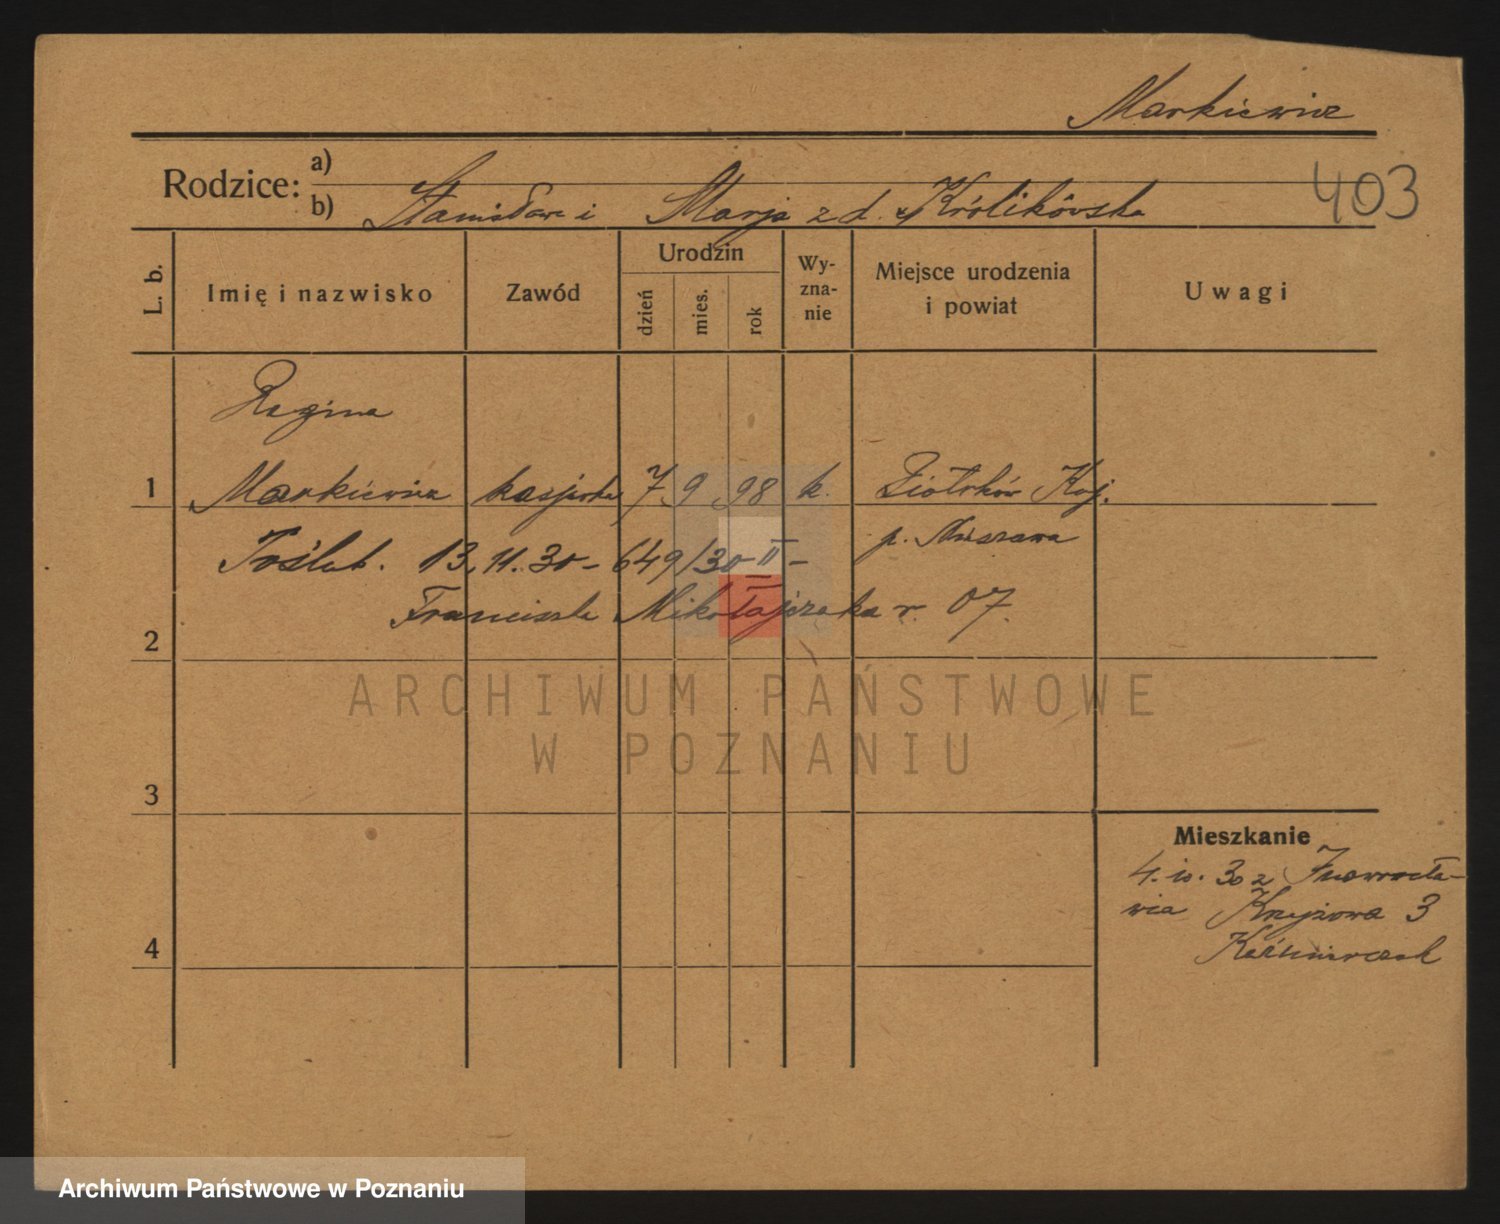 Markiewicz
Rodzice: a)
b) Stanisław i Marja z d. Królikówska
403
L. b.
Imię i nazwisko
Zawód
Urodzin
dzień
mies.
rok
Wy-
zna-
nie
Miejsce urodzenia
i powiat
Uwagi
Regina
1 Markiewicz kasjerka 7 9 98 k. Piotrków Kuj.
p. Nieszawa
Poślub. 13.11.30 – 649/30 II –
Franciszka Mikołajczaka r. 07.
2
ARCHIWUM PAŃSTWOWE
W POZNANIU
3
Mieszkanie
4.10.30 z Inowrocła-
wia Krzyżowa 3
4
Archiwum Państwowe w Poznaniu